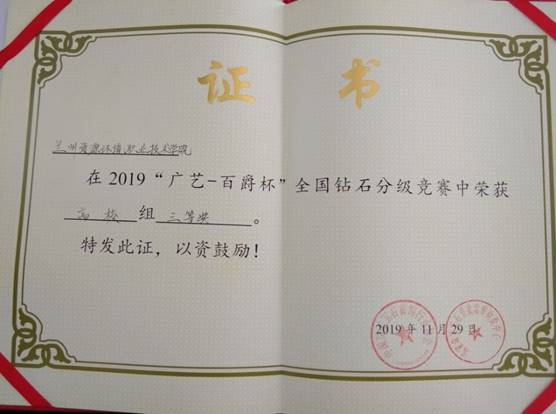 证书
兰州资源环境职业技术学院
在2019“广艺-百爵杯”全国钻石分级竞赛中荣获
高校 组 三等奖 。
特发此证，以资鼓励！
2019年11月29日